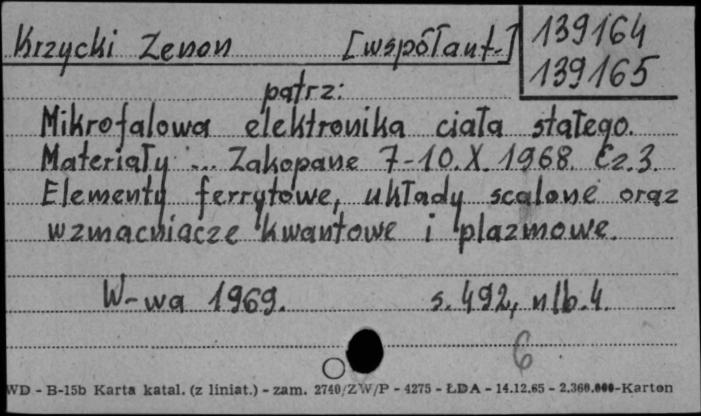 Krzycki Zenon [współaut.] 139164
139165
patrz:
Mikrofalowa elektronika ciała stałego.
Materiały ... Zakopane 7-10.X.1968. Cz.3.
Elementy ferrytowe, układy scalone oraz
wzmacniacze kwantowe i plazmowe.
W-wa 1969. s. 492, nlb. 4.
6
WD - B-15b Karta katal. (z liniat.) - zam. 2740/ZW/P - 4275 - ŁDA - 14.12.65 - 2.360.000-Karton